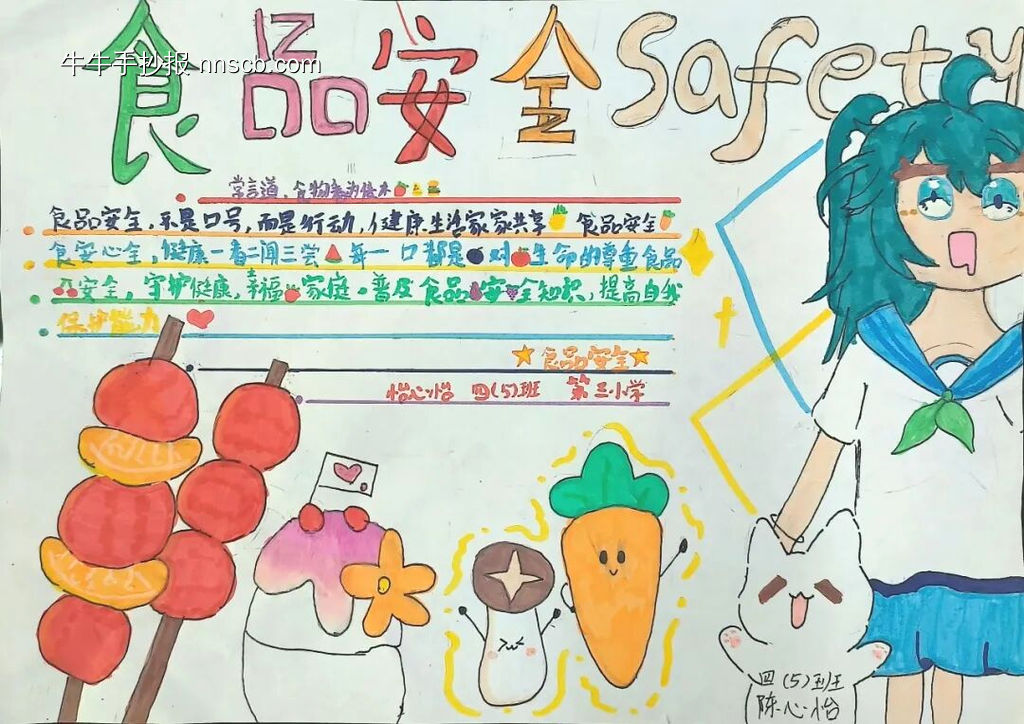 食品安全 Safety
牛牛手抄报 nnscb.com
常言道,食物素为俭本
食品安全,不是口号,而是行动,健康生活家家共享 食品安全
食安心全,健康一看二闻三尝 每一口都是 对 生命的尊重食品
安全,守护健康,幸福 家庭。普及食品 安 全知识,提高自我
保护能力
食品安全
怡心怡 四(5)班 第三小学
四(5)班
陈心怡